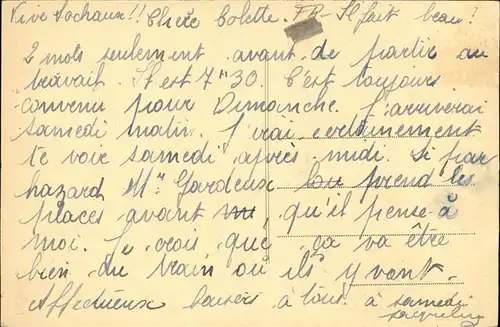 Vive Sochaux!! Chère Colette. FR - Il fait beau!
2 mots seulement avant de partir au
travail. Il est 7ʰ30. C'est toujours
convenu pour Dimanche. J'arriverai
samedi matin. J'irai certainement
te voir samedi après midi. Si par
hazard Mʳ Gardeux prend les
places avant, qu'il pense à
moi. Je crois que ça va être
bien du train où ils y vont.
Affectueux baisers à tous à samedi
Jacqueline